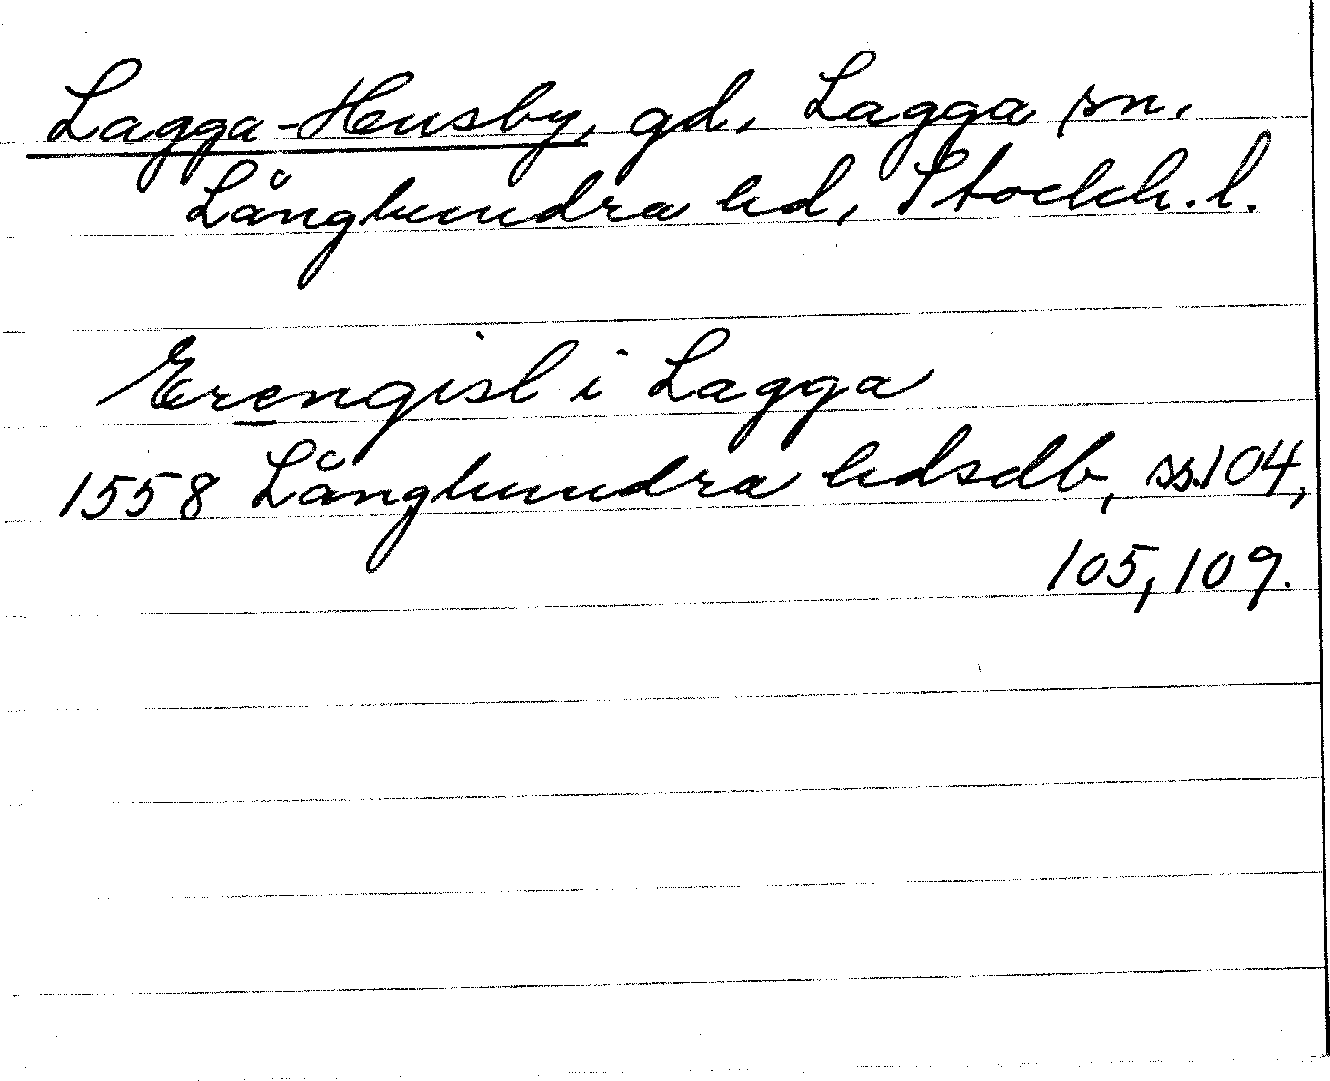 Lagga-Husby, gd, Lagga sn.
Långhundra hd, Stockh. l.
Erengisl i Lagga
1558 Långhundra hdsdb, ss. 104,
105, 109.